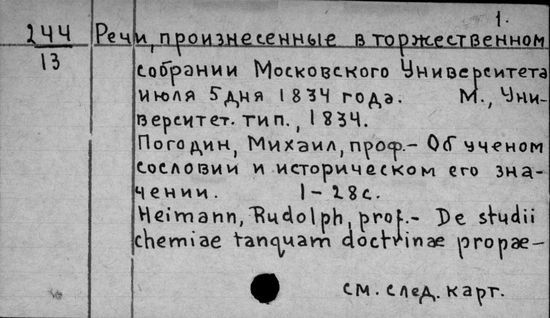 1.
244 Речи, произнесенные в торжественном
13
собрании Московского Университета
июля 5 дня 1834 года. М., Уни-
верситет. тип., 1834.
Погодин, Михаил, проф.- Об ученом
сословии и историческом его зна-
чении. 1-28с.
Heimann, Rudolph, prof.- De studii
chemiae tanquam doctrinae propae-
см. след. карт.